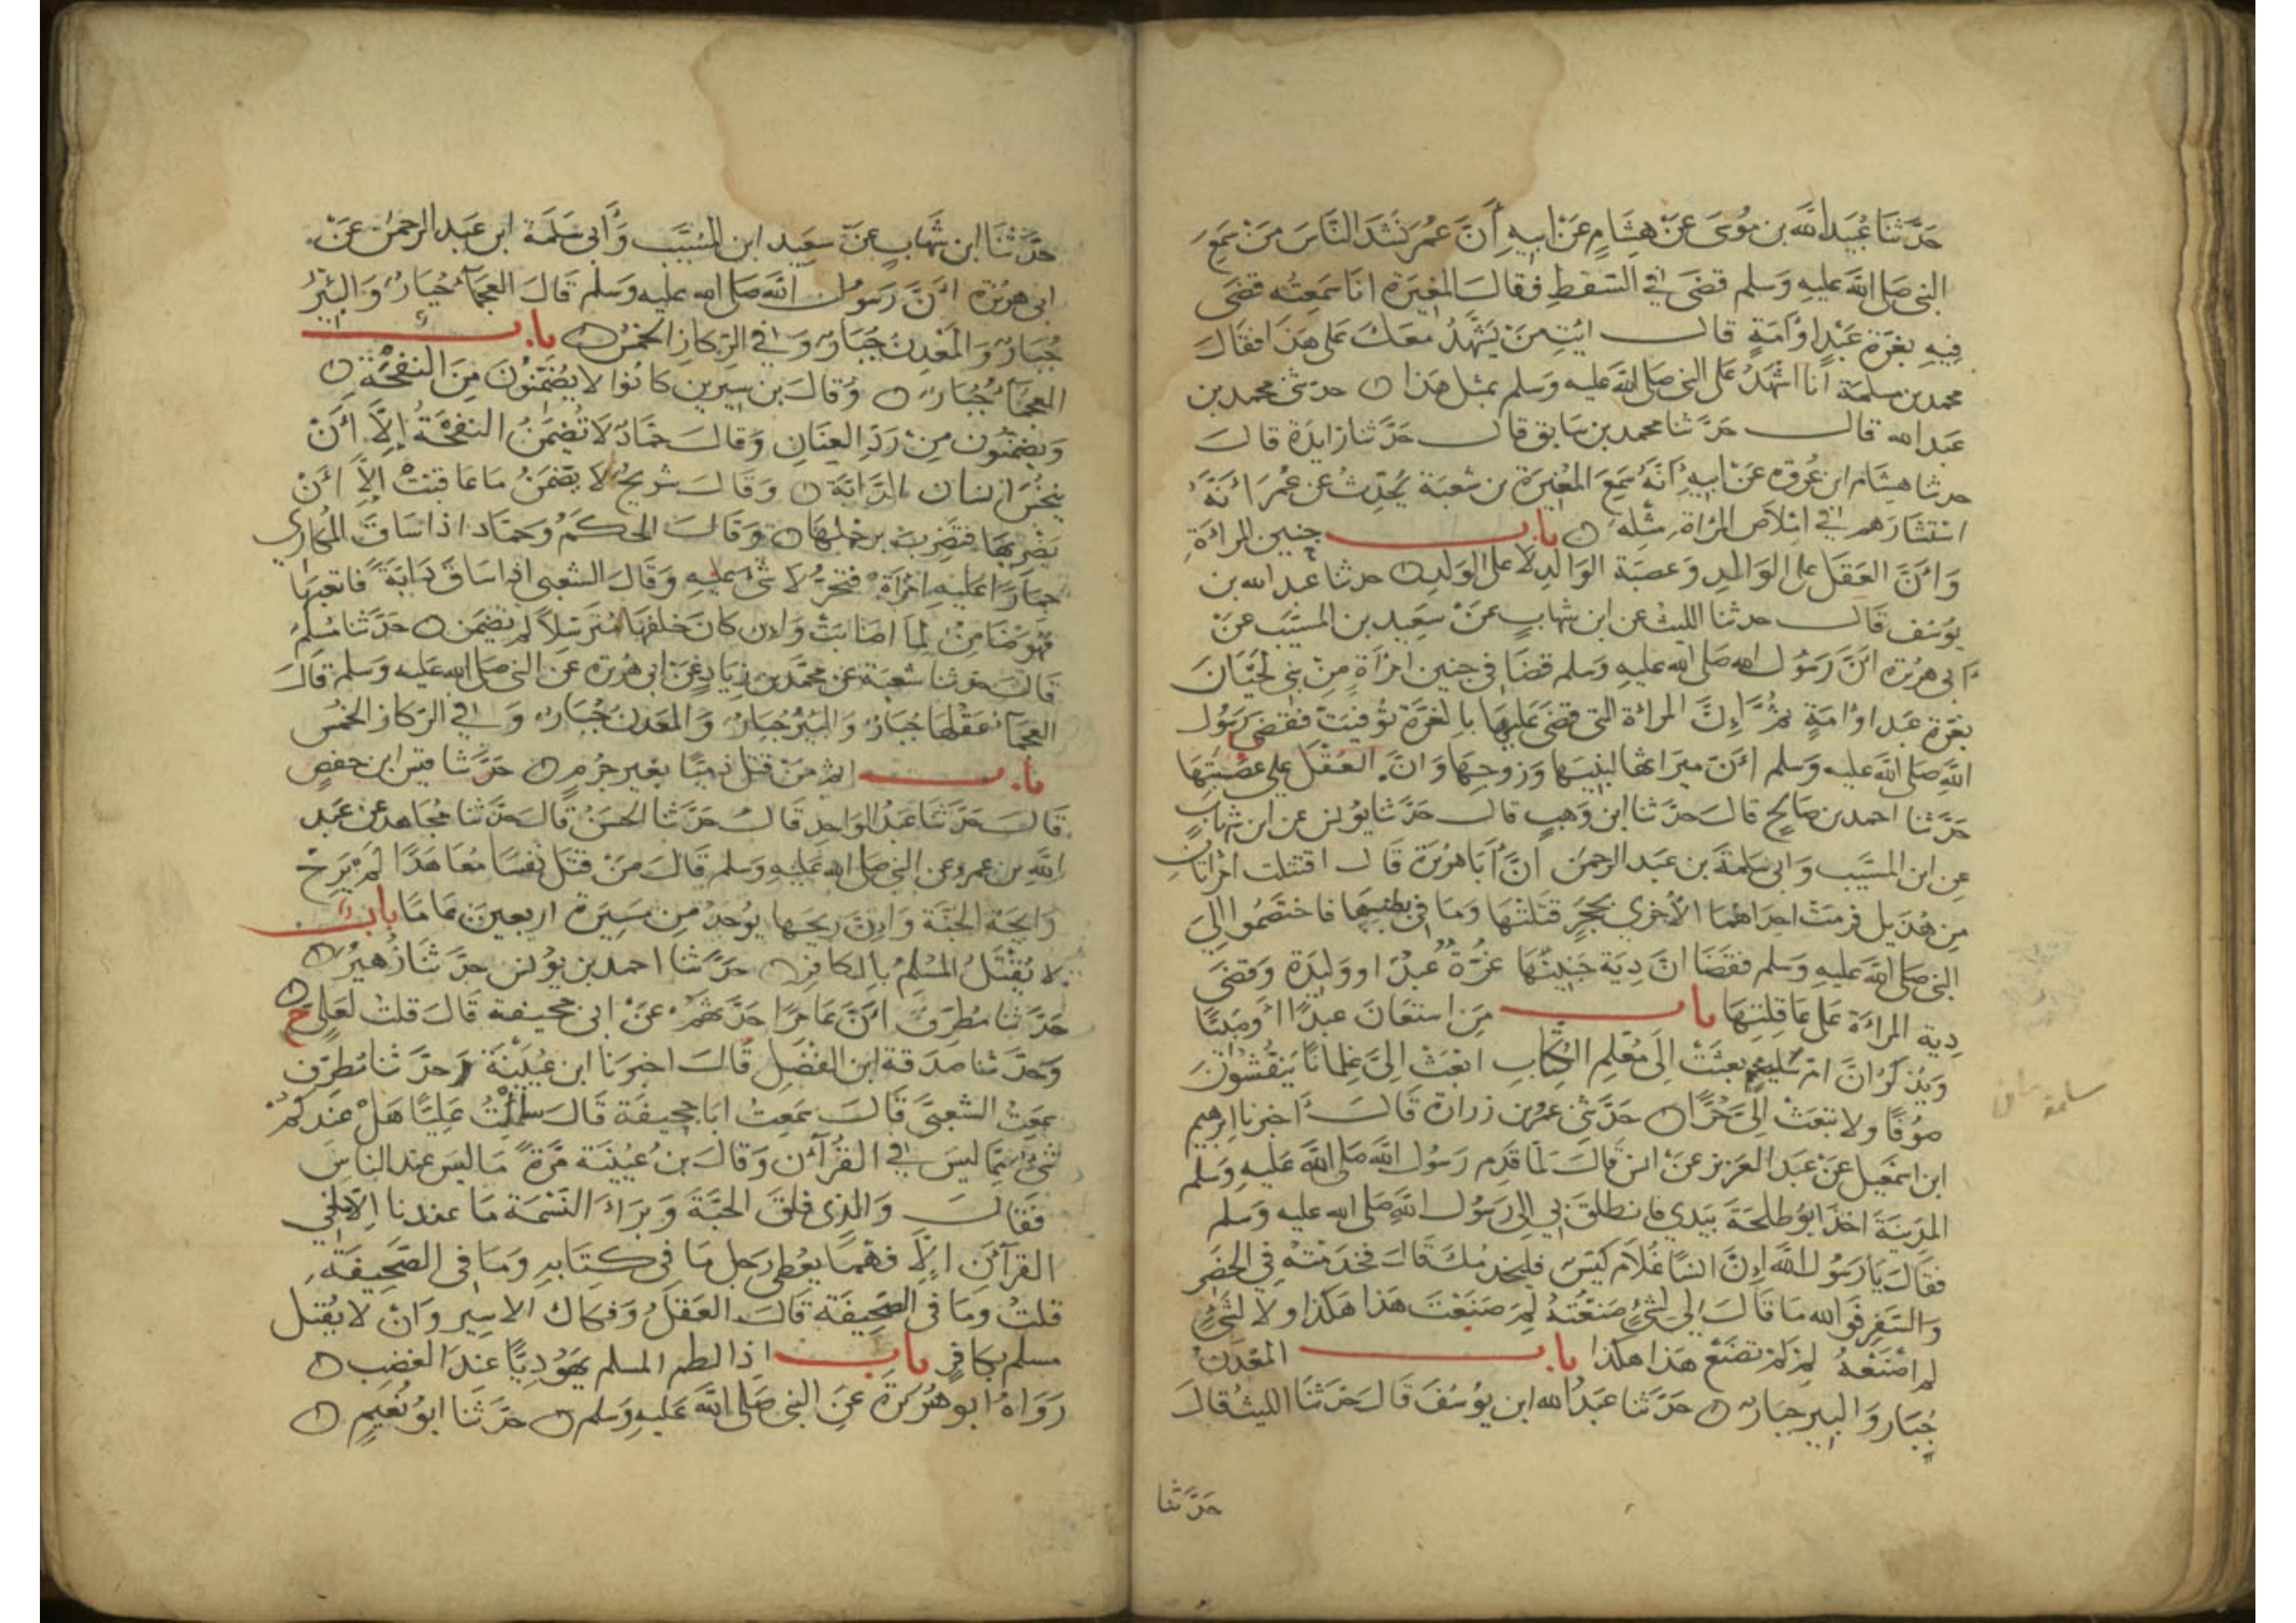 حَدَّثَنَا عُبَيْدُ اللَّه بن مُوسَى عَنْ هِشَامٍ عَنْ ابيهِ أَنَّ عُمَر نَشَدَ النَّاسَ مَنْ سَمِعَ
النبي صَلى اللَّهَ عليهِ وَسَلم قضَى في السِّقطِ فقالَ المُغيرَة انَا سَمِعتُه قضَى
فِيهِ بغرَّة عَبْدٍ اوْ أَمَةٍ قالَ ائتِ مَنْ يَشْهَدُ معَكَ عَلى هَذا فقَالَ
محمد بن مسلمة أنا اشهَدُ عَلى النبي صَلى اللَّه عليه وَسَلم بمثل هَذا ۝ حدثني محمد بن
عَبد الله قالَ حَدَّثنا محمد بن سَابق قالَ حَدَّثنا زايدَة قالَ
حدثنا هِشَام ابن عُروَه عَنْ ابيهِ أنَّهُ سَمِعَ المُغيرَة بن شعبَة يُحَدِّثُ عن عُمرَ أنَّهُ
استشارَهم في امْلَاصِ المرْاةِ مثْله ۝ باب جنين المراَةِ
وَأنَّ العَقلَ على الوَالدِ وَعصَبَة الوَالدِ لا على الوَلدِ ۝ حدثنا عبد الله بن
يُوسُف قالَ حدثنا الليث عن ابن شهابٍ عَنْ سَعِيد بن المسَيَّب عَنْ
أبي هريْرة أنَّ رَسُول الله صَلى الله عليهِ وَسَلم قضَا في جنين امْرأةٍ مِنْ بني لحيَانَ
بغرَّة عَبد اوْ امَةٍ ثمَّ إِنَّ المراَة التي قضَى عَليهَا بالغرَّة تُوفيَتْ فقضَى رَسُول
اللَّهِ صَلى اللَّه عليه وَسَلم أنَّ ميرَاثها لبَنيهَا وَزَوجِهَا وَانَّ العَقْلَ على عَصَبتِهَا
حَدَّثنا احمد بن صَالحٍ قالَ حَدَّثنا ابن وَهبٍ قالَ حَدَّثنا يُونس عن ابن شهابٍ
عن ابن المسَيَّب وَابي سَلمَة بن عَبد الرحمن أنَّ أبَا هرَيْرَة قالَ اقتتلت امْرأتانِ
مِن هُذَيل فرمَتْ احدَاهُمَا الأخْرى بحجَرٍ قتَلتْهَا وَمَا في بطنِهَا فاختصَمُوا إلى
النبي صَلى اللَّه عليهِ وَسَلم فقضَا انَّ دِيَة جَنِينهَا غُرَّةٌ عَبدٌ او وَليدَة وَقضَى
دِية المراَة عَلى عَاقِلتِهَا باب مَن استَعَانَ عبدًا أوْ صَبيًا
وَيُذكَرُ انَّ امَّ سُليم بعثَتْ إلى مُعَلِمِ الكتابِ ابْعَثْ إليَّ غِلمانًا يَنفُشُونَ
صُوفًا ولا تبعَثْ إليَّ حُرًّا ۝ حَدَّثني عمرُو بن زرارة قالَ أخبرنا ابرهيم
ابن اسمعيل عَنْ عبَد العَزيز عَنْ انس قالَ لمَا قدِم رَسُول اللَّه صَلى اللَّه عَليهِ وَسَلم
المدِينَةَ اخذَ ابُو طلحَةَ بيَدي فانطلقَ بي إلى رَسُول اللَّهِ صَلى الله عليه وَسَلم
فقالَ يَا رَسُول اللَّه إِنَّ انسًا غُلَام كَيّسٌ فليَخدمْكَ قالَ فخدمْتهُ في الحضَر
وَالسَّفر فوَ الله مَا قالَ لي لشَيْءٍ صَنعْتُهُ لِمَ صَنَعْتَ هَذا هَكذا ولا لشيْءٍ
لم اصْنَعْهُ لِمَ لمْ تصْنَعْ هَذا هكذا باب المعْدَن
جُبَار وَالبير جبَار ۝ حَدَّثنا عبَدُ الله ابن يُوسُفَ قالَ حَدَّثنَا الليثُ قالَ
حَدَّثنا
حَدَّثنَا ابن شهَابٍ عَنْ سَعِيد ابن المُسَيَّب وَأبي سَلمَة ابن عَبد الرحمن عَنْ
ابي هريْرة أنَّ رَسُول اللَّه صَلى الله عليه وَسَلم قالَ العجمَاءُ جُبَارٌ وَالبِئْرُ
جُبَارٌ وَالمَعْدِنُ جُبَارٌ وَفي الرِّكازِ الخمُسُ ۝ باب
العجمَاءُ جُبَارٌ ۝ وَقالَ بن سيرين كانُوا لا يُضَمِّنُونَ مِنَ النفحَة ۝
وَيضَمِّنُون مِنْ رَدِّ العِنَانِ وَقالَ حَمَّادٌ لَا تُضْمَنُ النفحَةُ إلاَّ أنْ
يَنخُسَ انسَان الدَّابَة ۝ وَقَالَ شريحٌ لا يضْمَنُ مَا عاقبَتْ إلاَّ أنْ
يضْربهَا فتَضْربَ برجْلِهَا ۝ وَقَالَ الحكَمُ وَحمَّاد اذا سَاقَ المُكارِي
حمَارًا عَليهِ امْرَأة فتخِرُّ لَا شيْءَ عَليهِ وَقالَ الشعبي اذا سَاقَ دَابَةً فاتعَبَهَا
فهوَ ضَامِنٌ لِمَا اصَابَتْ وَان كانَ خلفهَا مُترَسِّلًا لم يَضْمَن ۝ حَدَّثنا مُسْلمٌ
قالَ حَدثنا شعبَة عَن محمَّد بن زيَادٍ عَن ابي هريْرة عَن النبي صَلى الله عَليه وَسَلم قالَ
العجمَاءُ عَقْلُهَا جُبَارٌ وَالبِئرُ جُبَارٌ وَالمعْدِنُ جُبَارٌ وَفي الركاز الخمُس
باب إثم مَنْ قتَل ذميًا بغير جُرْمٍ ۝ حَدَّثنا قيس ابن حفصٍ
قالَ حَدَّثنَا عَبْدُ الوَاحِد قَالَ حَدَّثنا الحسَنُ قالَ حَدَّثنا مُجَاهِد عَن عَبد
اللَّهِ بن عمرو عن النبي صَلى الله عَليهِ وَسَلم قَالَ مَنْ قتَلَ نَفسًا مُعَاهَدًا لَمْ يَرَحْ
رَائِحَة الجَنَّة وَإنَّ ريحَهَا يُوجَدُ مِن مَسِيرَة اربعِينَ عَامًا باب
لا يُقْتَلُ المُسْلِمُ بِالكافِرِ ۝ حَدَّثنا احمد بن يُونس حَدَّثنَا زُهَيرٌ ۝
حَدَّثنا مُطرِّف أنَّ عَامِرًا حَدَّثهُمْ عَنْ ابي جُحيفة قَالَ قلتُ لعَليٍّ ۝ ح
وَحَدَّثنا صدَقة ابن الفضْل قَالَ اخبرَنا ابن عُيَيْنَة حَدَّثنا مُطرّف
سمعتُ الشعبيَّ قَالَ سَمِعتُ ابَا جُحِيفَة قَالَ سَألْتُ عَليًا هَلْ عندَكمْ
شيْءٌ ممَّا ليسَ في القرْآن وَقالَ بن عُيَيْنَة مَرَّة مَا ليسَ عند الناسِ
فَقَالَ وَالذِي فلقَ الحَبَّةَ وَبَرَأ النَّسْمَة مَا عندنا إلَّا مَا في
القرْآن إلَّا فهْمًا يعْطَى رَجل مَا في كِتَابهِ وَمَا في الصَّحِيفَةِ
قلتُ وَمَا في الصَّحِيفَة قَالَ العَقلُ وَفكاك الاسير وَانْ لا يُقتل
مسلم بكافِرٍ باب اذا لطم المسلم يَهُودِيًّا عندَ الغضَب ۝
رَوَاهُ ابو هُرَيْرَة عَنِ النبي صَلى اللَّه عَليهِ وَسَلم ۝ حَدَّثنَا ابُو نُعَيمٍ ۝